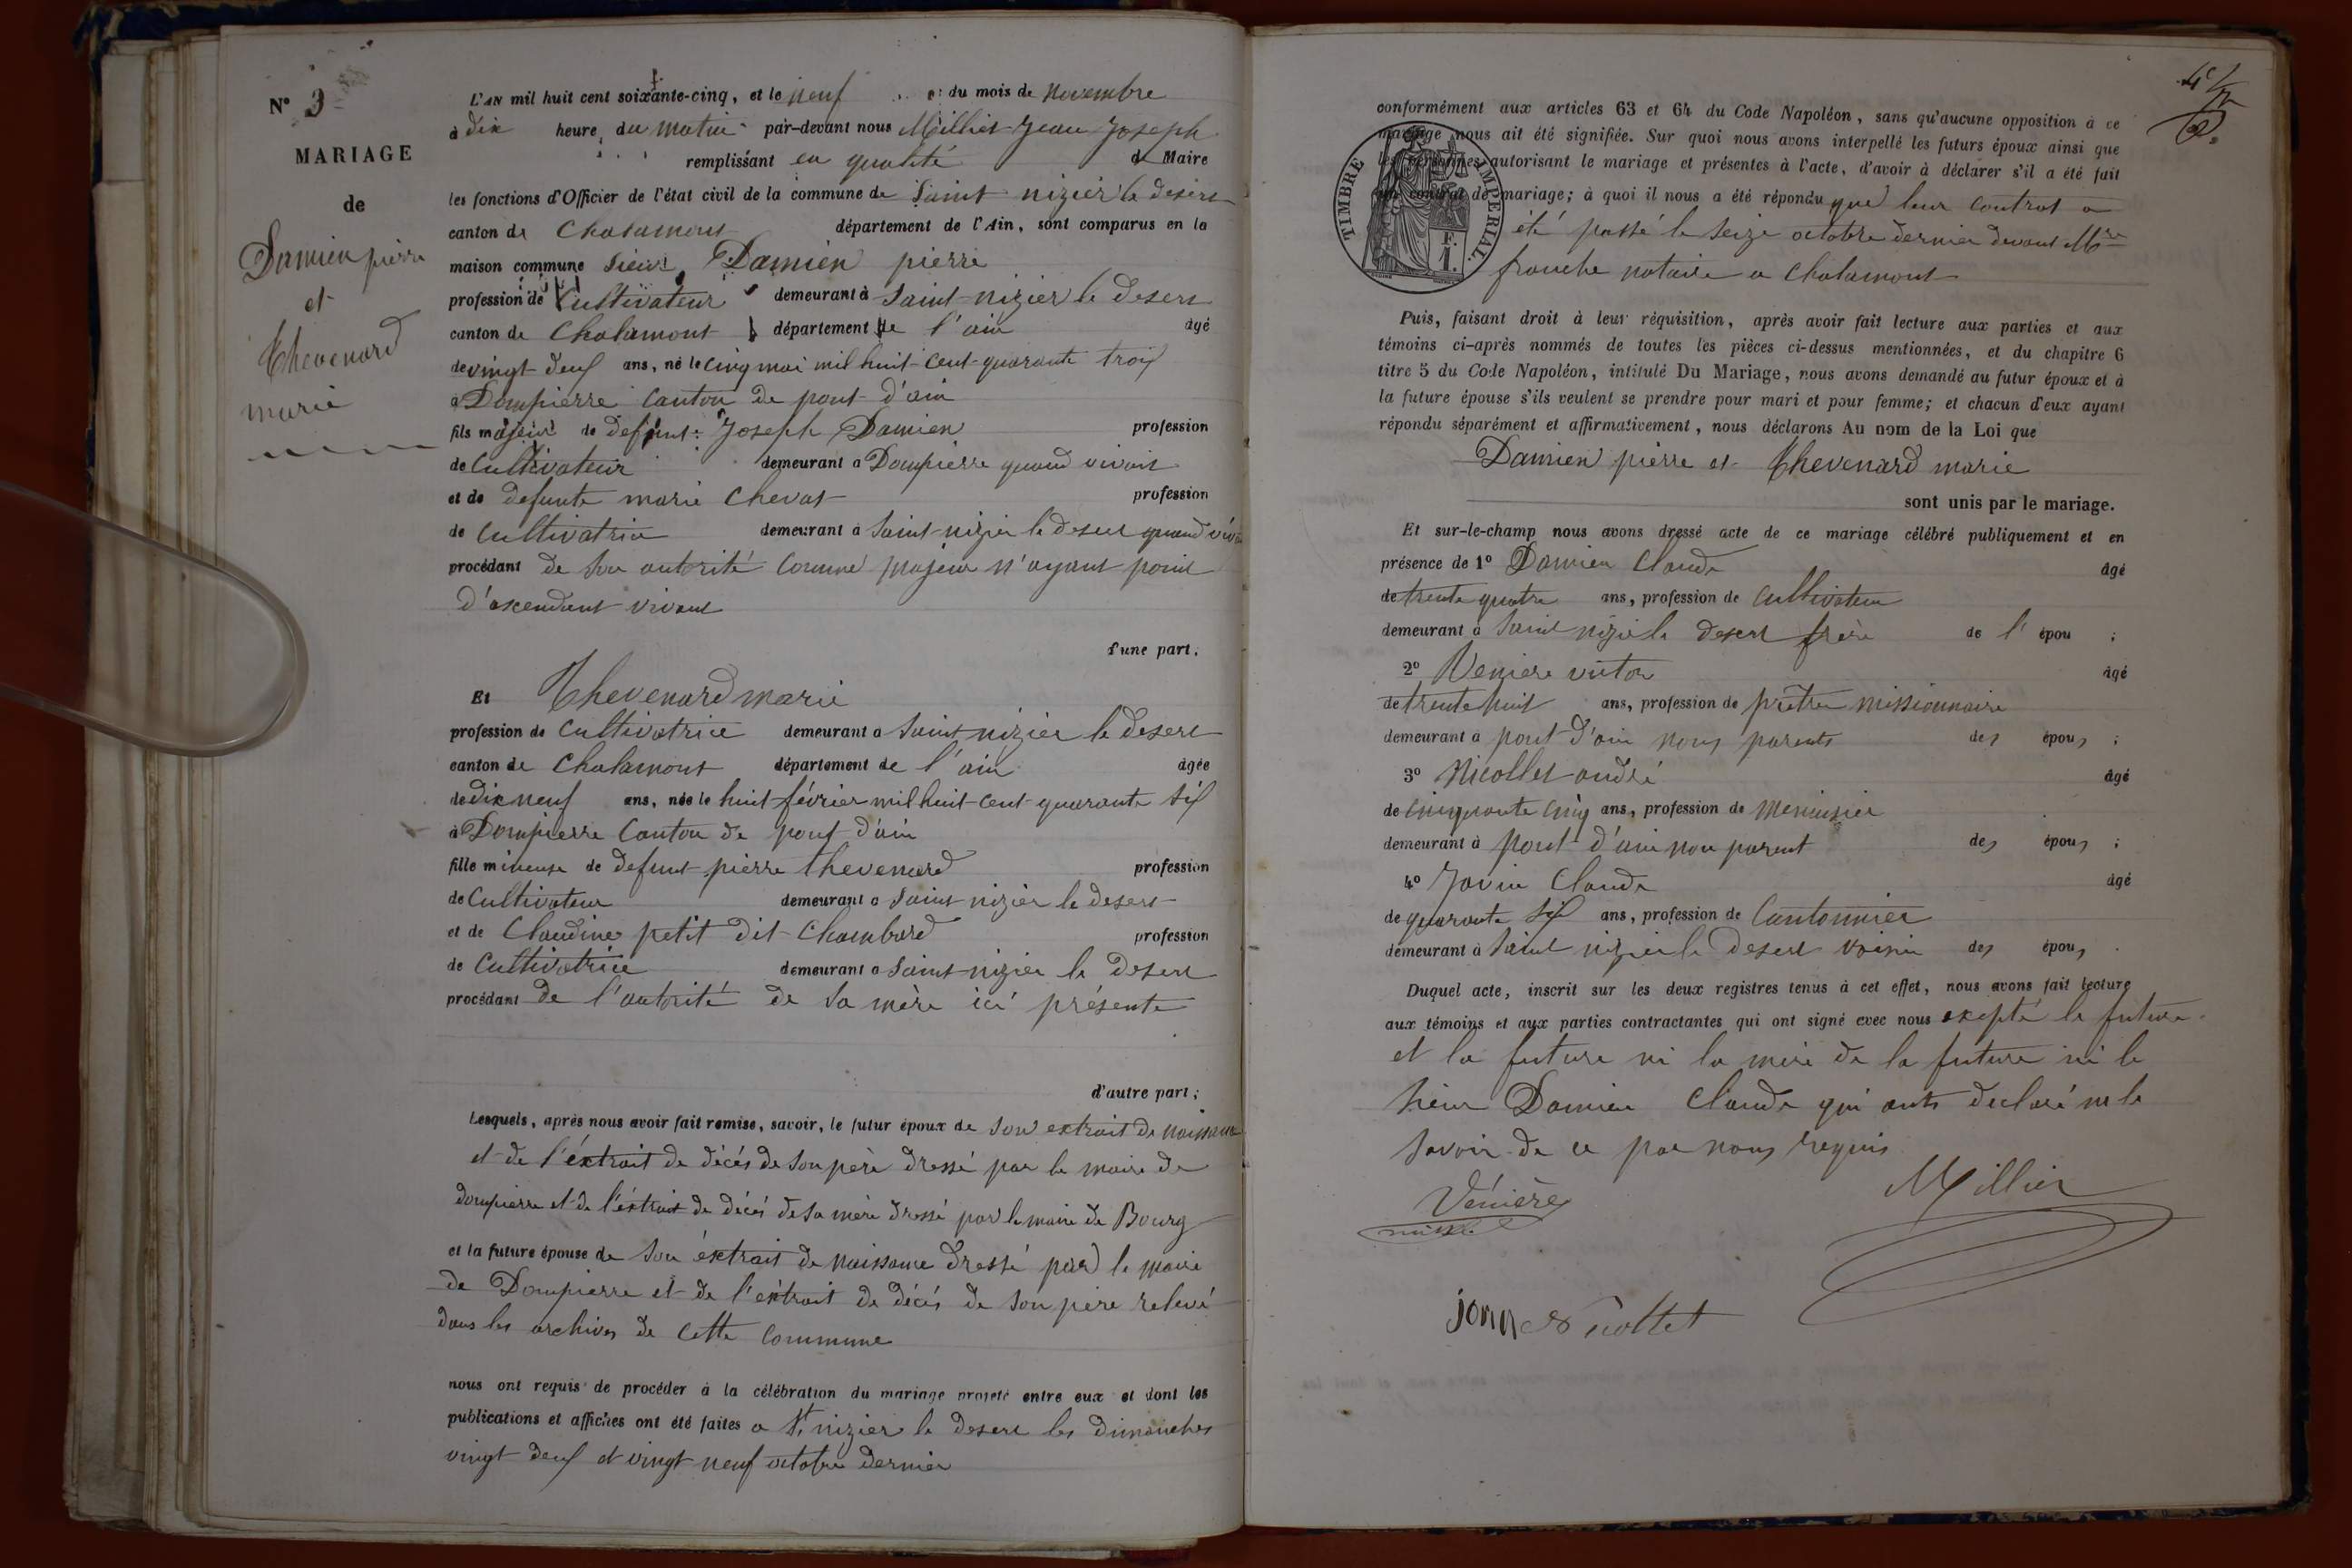 N° 3
MARIAGE
de
Damien pierre
et
Thevenard
marie
L'AN mil huit cent soixante-cinq, et le neuf du mois de novembre
à dix heure du matin par-devant nous Millier Jean Joseph
remplissant en qualité de Maire
les fonctions d'Officier de l'état civil de la commune de Saint nizier le desert
canton de Chalamont département de l'Ain, sont comparus en la
maison commune sieur Damien pierre
profession de Cultivateur demeurant à saint-nizier le desert
canton de Chalamont département de l'ain âgé
de vingt deux ans, né le cinq mai mil huit-cent-quarante trois
à Dompierre Canton de pont d'ain
fils majeur de defunt Joseph Damien profession
de Cultivateur demeurant à Dompierre quand vivait
et de defunte marie Chevat profession
de cultivatrice demeurant à Saint-nizier le desert quand
procédant de son autorité Comme majeur n'ayant point
d'axendant vivant
d'une part.
Et Thevenard marie
profession de Cultivatrice demeurant à saint nizier le desert
canton de Chalamont département de l'ain âgée
de dix neuf ans, née le huit février mil huit-cent-quarante six
à Dompierre Canton de pont d'ain
fille mineuse de defunt pierre thevenard profession
de Cultivateur demeurant à saint nizier le desert
et de Claudine petit dit Chambard profession
de Cultivatrice demeurant à saint-nizier le desert
procédant de l'autorité de sa mère ici présente
d'autre part;
Lesquels, après nous avoir fait remise, savoir, le futur époux de son extrait de naissance
et de l'éxtrait de décés de son père dressé par le maire de
dompierre et de l'éxtrait de décés de sa mère dressé par le maire de Bourg
et la future épouse de son éxtrait de naissance dressé par le maire
de Dompierre et de l'éxtrait de décés de son père relevé
dans les archives de cette Commune
nous ont requis de procéder à la célébration du mariage projeté entre eux et dont les
publications et affiches ont été faites a St nizier le desert les dimanches
vingt deux et vingt neuf octobre dernier
conformément aux articles 63 et 64 du Code Napoléon, sans qu'aucune opposition à ce
mariage nous ait été signifiée. Sur quoi nous avons interpellé les futurs époux ainsi que
les personnes autorisant le mariage et présentes à l'acte, d'avoir à déclarer s'il a été fait
un contrat de mariage; à quoi il nous a été répondu que leur contrat a
été passé le seize octobre dernier devant Mtre
franche notaire a Chalamont
TIMBRE IMPERIAL.
F.
1.
Puis, faisant droit à leur réquisition, après avoir fait lecture aux parties et aux
témoins ci-après nommés de toutes les pièces ci-dessus mentionnées, et du chapitre 6
titre 5 du Code Napoléon, intitulé Du Mariage, nous avons demandé au futur époux et à
la future épouse s'ils veulent se prendre pour mari et pour femme; et chacun d'eux ayant
répondu séparément et affirmativement, nous déclarons Au nom de la Loi que
Damien pierre et Thevenard marie
sont unis par le mariage.
Et sur-le-champ nous avons dressé acte de ce mariage célébré publiquement et en
présence de 1° Damien Claude âgé
de trente quatre ans, profession de Cultivateur
demeurant à Saint nizier le desert frère de l'épou ;
2° Veniere victor âgé
de trente huit ans, profession de prêtre missionnaire
demeurant à pont d'ain nous parents des épous ;
3° Nicollet andré âgé
de cinquante cinq ans, profession de Menuisier
demeurant à pont d'ain non parent des épous ;
4° Jovin Claude âgé
de quarante six ans, profession de Cantonnier
demeurant à Saint nizier le desert voisin des épous
Duquel acte, inscrit sur les deux registres tenus à cet effet, nous avons fait lecture
aux témoins et aux parties contractantes qui ont signé avec nous exepté le future
et la future ni la mère de la future ni le
sieur Damien Claude qui onts declaré ne le
savoir de ce par nous requis
Vénière
miss.
Millier
Nicollet